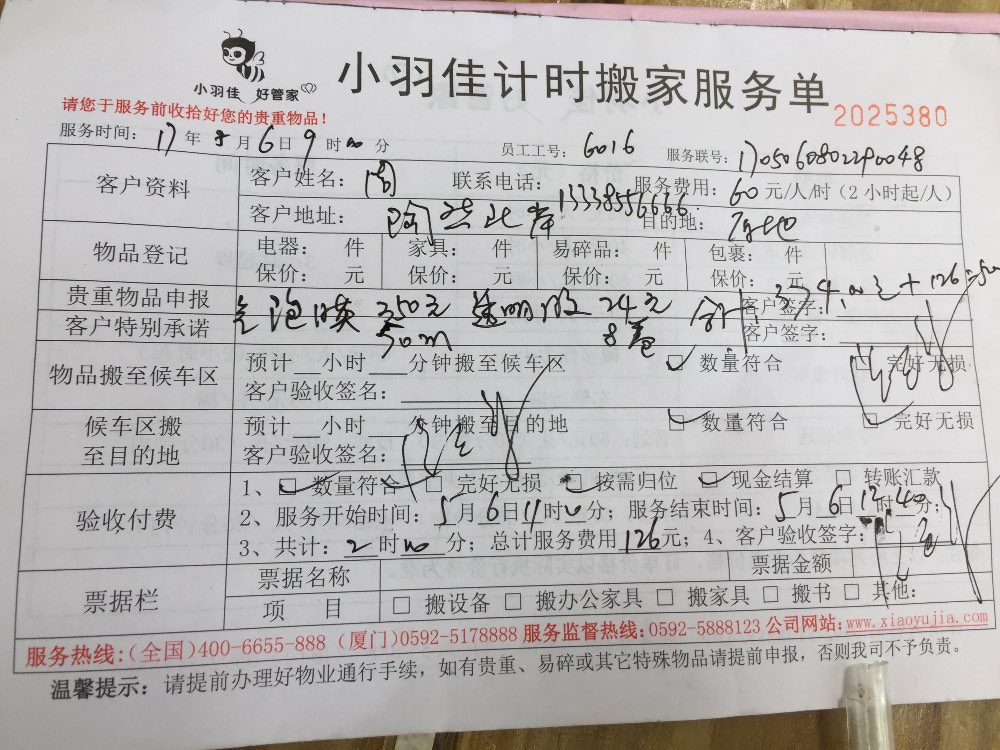 小羽佳 好管家
小羽佳计时搬家服务单
2025380
请您于服务前收拾好您的贵重物品！
服务时间：17年5月6日9时00分 员工工号：6016 服务联号：1705060802290048
客户资料 客户姓名：周 联系电话：13338556666 服务费用：60元/人/时（2小时起/人）
客户地址： 目的地：
物品登记 电器： 件 家具： 件 易碎品： 件 包裹： 件
保价： 元 保价： 元 保价： 元 保价： 元
贵重物品申报 气泡膜 350元 透明胶 24元 合计 客户签字：
客户特别承诺 50m 8卷 客户签字：
物品搬至候车区 预计__小时__分钟搬至候车区 数量符合 完好无损
客户验收签名：
候车区搬至目的地 预计__小时__分钟搬至目的地 数量符合 完好无损
客户验收签名：
验收付费 1、数量符合 □ 完好无损 按需归位 现金结算 □ 转账汇款
2、服务开始时间：5月6日11时00分；服务结束时间：5月6日 时40分；
3、共计：2时00分；总计服务费用126元；4、客户验收签字：
票据栏 票据名称 票据金额
项 目 □ 搬设备 □ 搬办公家具 □ 搬家具 □ 搬书 □ 其他：
服务热线：（全国）400-6655-888（厦门）0592-5178888 服务监督热线：0592-5888123 公司网站：www.xiaoyujia.com
温馨提示：请提前办理好物业通行手续，如有贵重、易碎或其它特殊物品请提前申报，否则我司不予负责。